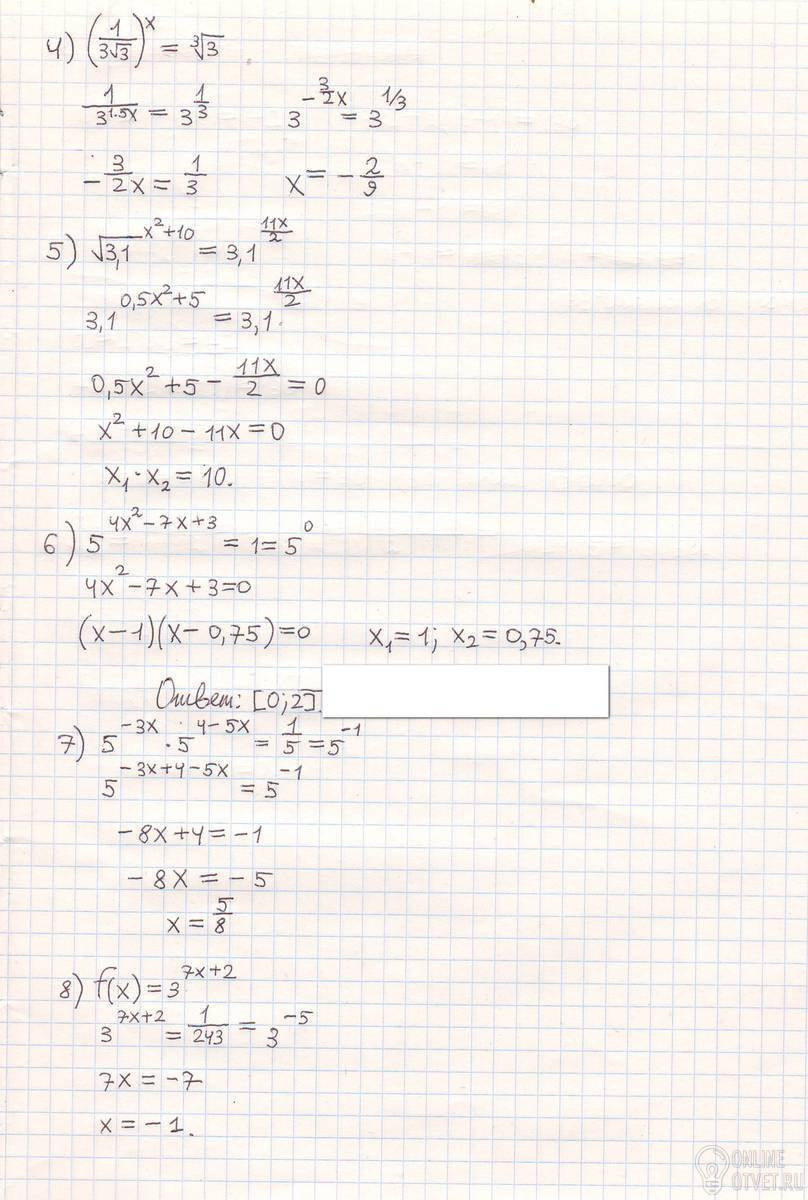 4) (1/(3√3))^x = ∛3
1/3^(1.5x) = 3^(1/3)   3^(-3/2x) = 3^(1/3)
-3/2x = 1/3   x = -2/9
5) √3,1^(x²+10) = 3,1^(11x/2)
3,1^(0,5x²+5) = 3,1^(11x/2)
0,5x² + 5 - 11x/2 = 0
x² + 10 - 11x = 0
x₁ · x₂ = 10.
6) 5^(4x²-7x+3) = 1 = 5^0
4x² - 7x + 3 = 0
(x-1)(x-0,75) = 0   x₁ = 1; x₂ = 0,75.
Ответ: [0;2].
7) 5^(-3x) · 5^(4-5x) = 1/5 = 5^(-1)
5^(-3x+4-5x) = 5^(-1)
-8x + 4 = -1
-8x = -5
x = 5/8
8) f(x) = 3^(7x+2)
3^(7x+2) = 1/243 = 3^(-5)
7x = -7
x = -1.
ONLINE
OTVET.RU